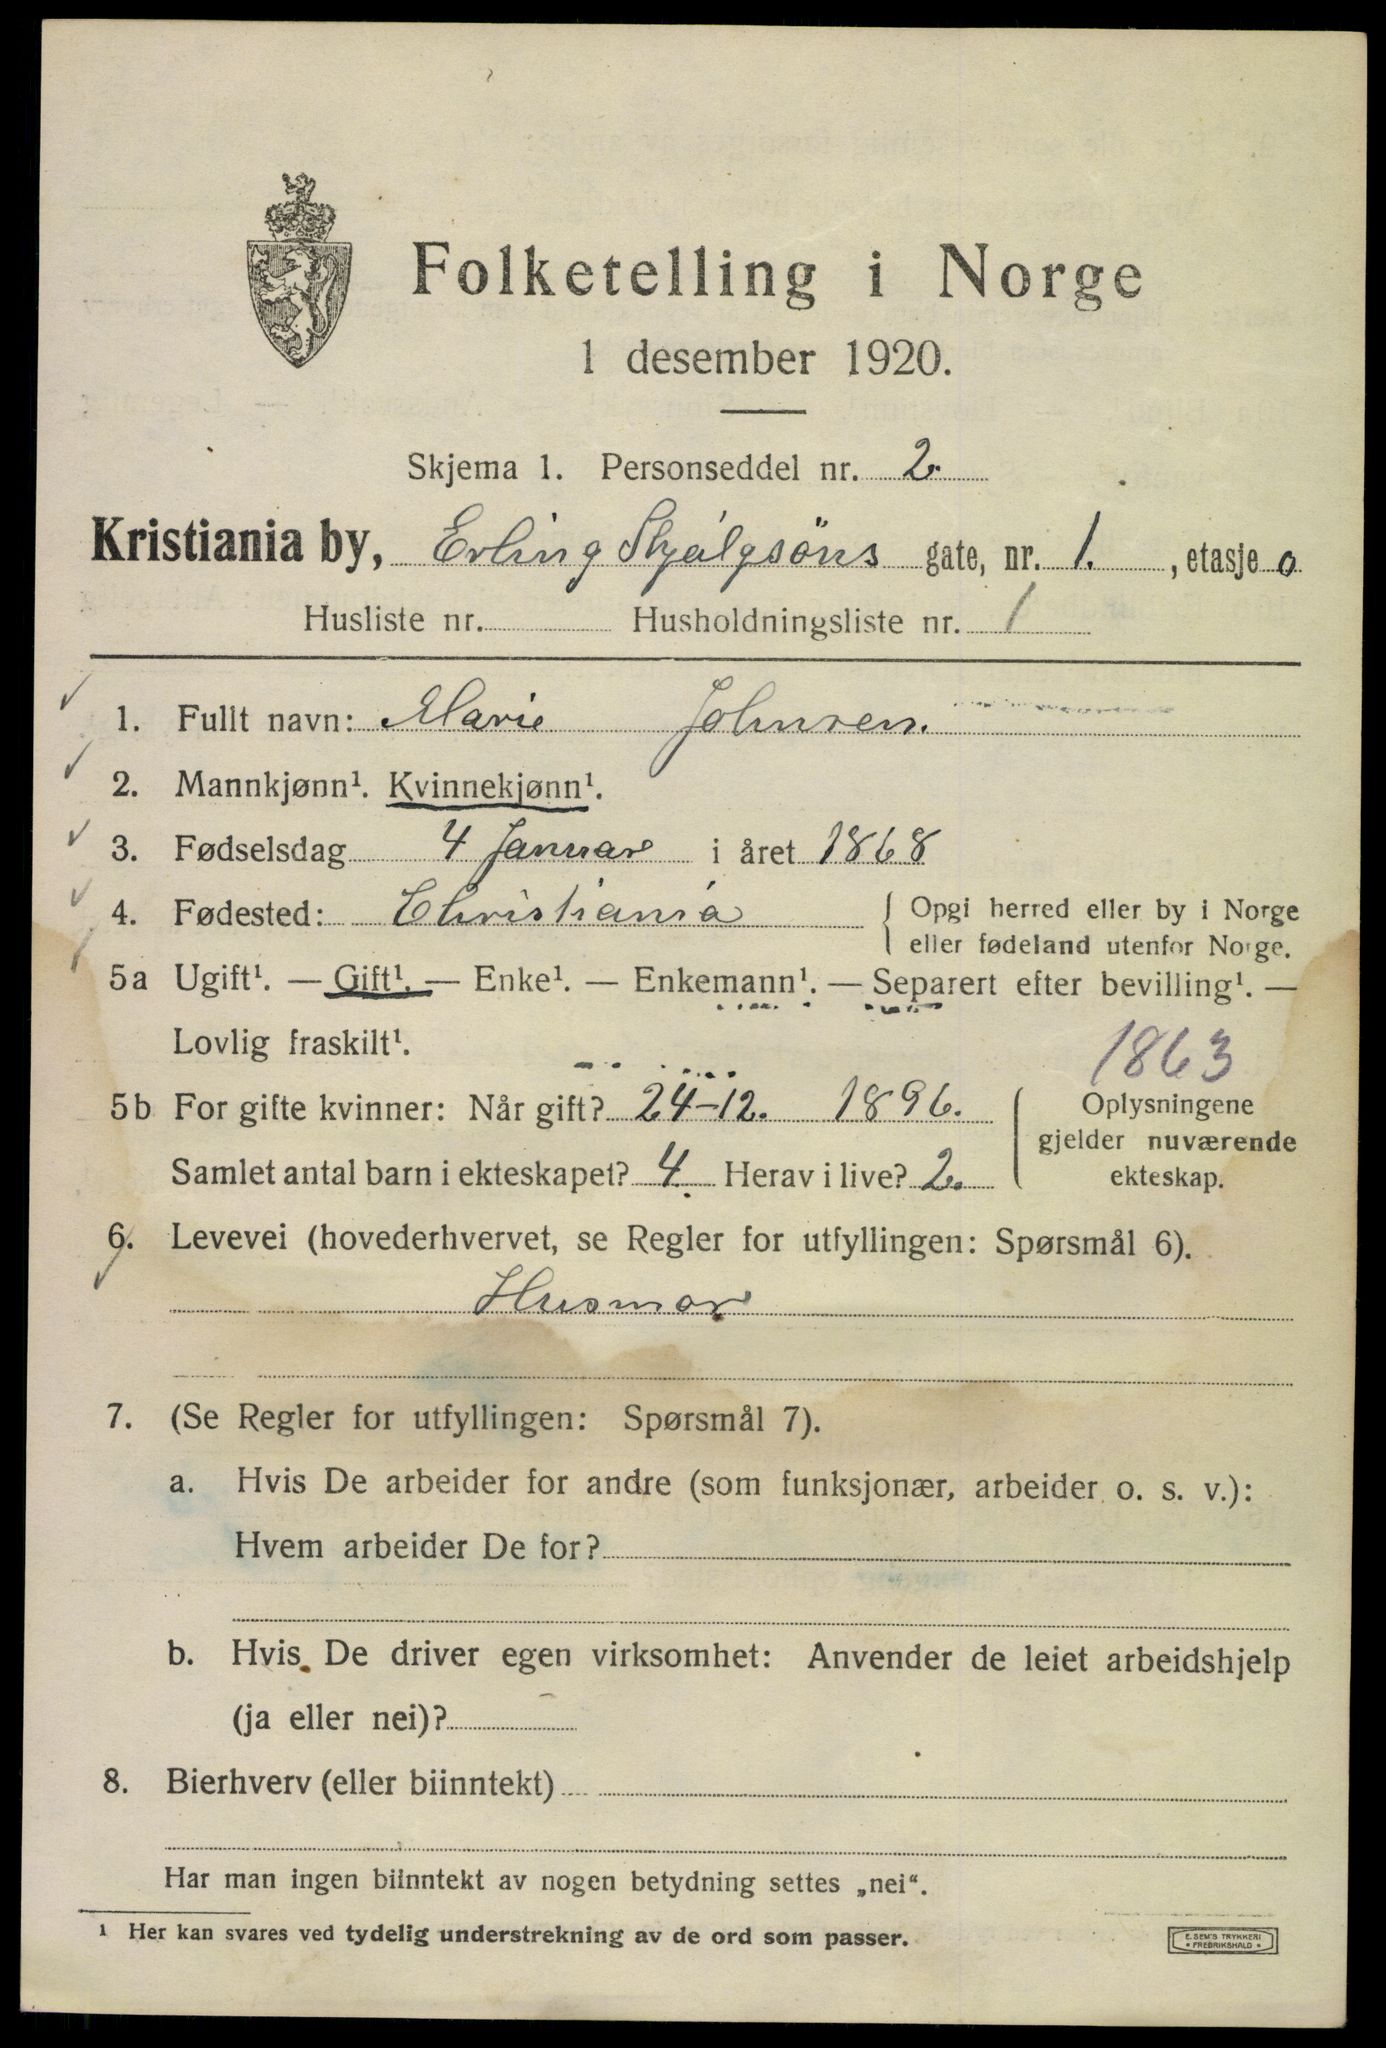 Folketelling i Norge
1 desember 1920.
Skjema 1. Personseddel nr. 2.
Kristiania by, Erling Skjalgsöns gate, nr. 1. , etasje 0
Husliste nr. Husholdningsliste nr. 1
1. Fullt navn: Marie Johnsen.
2. Mannkjønn¹. Kvinnekjønn¹.
3. Fødselsdag 4 Januar i året 1868
4. Fødested: Christiania { Opgi herred eller by i Norge
eller fødeland utenfor Norge.
5a Ugift¹. — Gift¹. — Enke¹. — Enkemann¹. — Separert efter bevilling¹. —
Lovlig fraskilt¹.
1863
5b For gifte kvinner: Når gift? 24-12. 1896. { Oplysningene
gjelder nuværende
Samlet antal barn i ekteskapet? 4. Herav i live? 2. ekteskap.
6. Levevei (hovederhvervet, se Regler for utfyllingen: Spørsmål 6).
Husmor
7. (Se Regler for utfyllingen: Spørsmål 7).
a. Hvis De arbeider for andre (som funksjonær, arbeider o. s. v.):
Hvem arbeider De for?
b. Hvis De driver egen virksomhet: Anvender de leiet arbeidshjelp
(ja eller nei)?
8. Bierhverv (eller biinntekt)
Har man ingen biinntekt av nogen betydning settes „nei“.
¹ Her kan svares ved tydelig understrekning av de ord som passer.
E. SEM'S TRYKKERI
• FREDRIKSHALD •